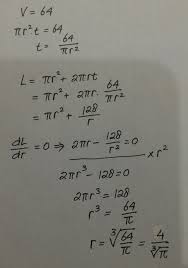 V = 64
πr²t = 64
t = 64/πr²
L = πr² + 2πrt
= πr² + 2πr . 64/πr²
= πr² + 128/r
dL/dr = 0 ⇒ 2πr − 128/r² = 0
× r²
2πr³ − 128 = 0
2πr³ = 128
r³ = 64/π
r = ∛(64/π) = 4/∛π